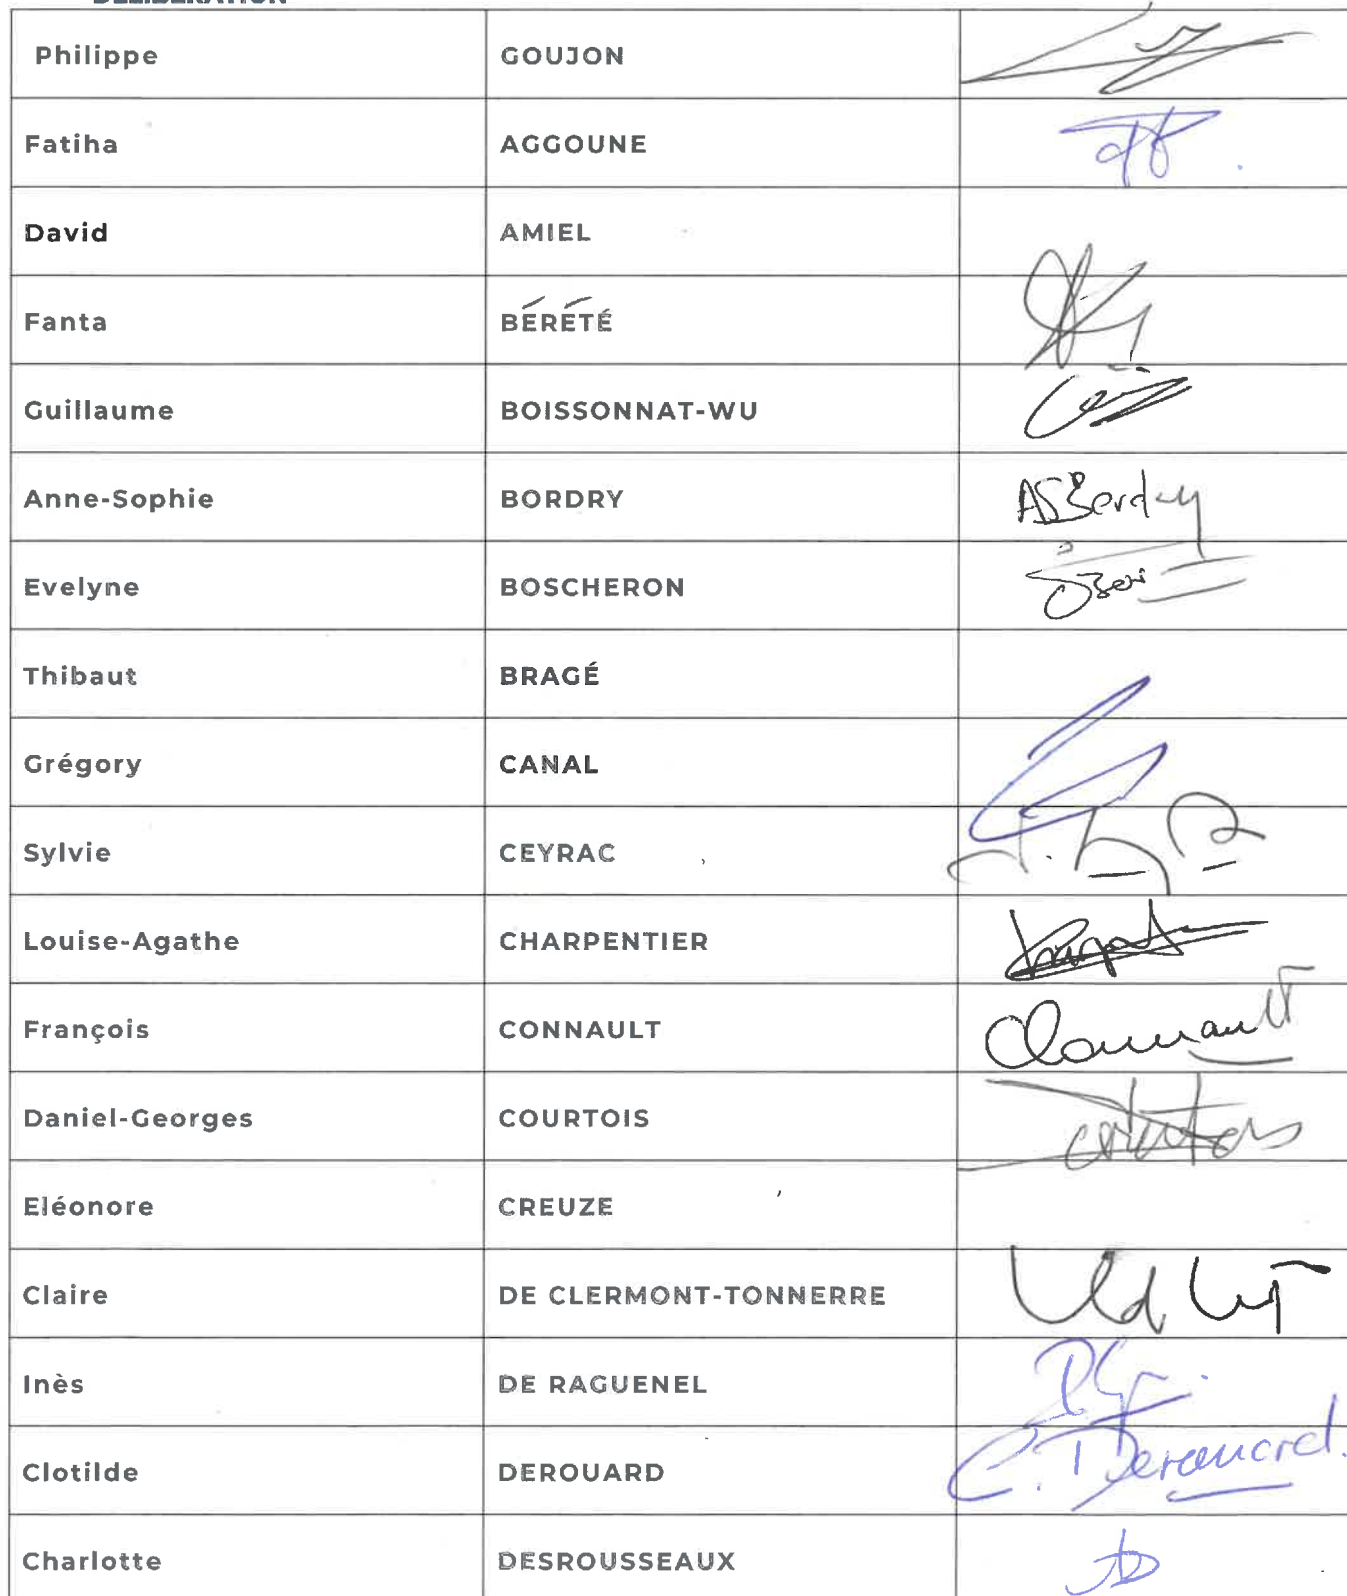 DÉLIBÉRATION
Philippe GOUJON
Fatiha AGGOUNE
David AMIEL
Fanta BÉRÉTÉ
Guillaume BOISSONNAT-WU
Anne-Sophie BORDRY ASBordry
Evelyne BOSCHERON
Thibaut BRAGÉ
Grégory CANAL
Sylvie CEYRAC
Louise-Agathe CHARPENTIER
François CONNAULT Connault
Daniel-Georges COURTOIS Courtois
Eléonore CREUZE
Claire DE CLERMONT-TONNERRE
Inès DE RAGUENEL
Clotilde DEROUARD C. Derouard.
Charlotte DESROUSSEAUX